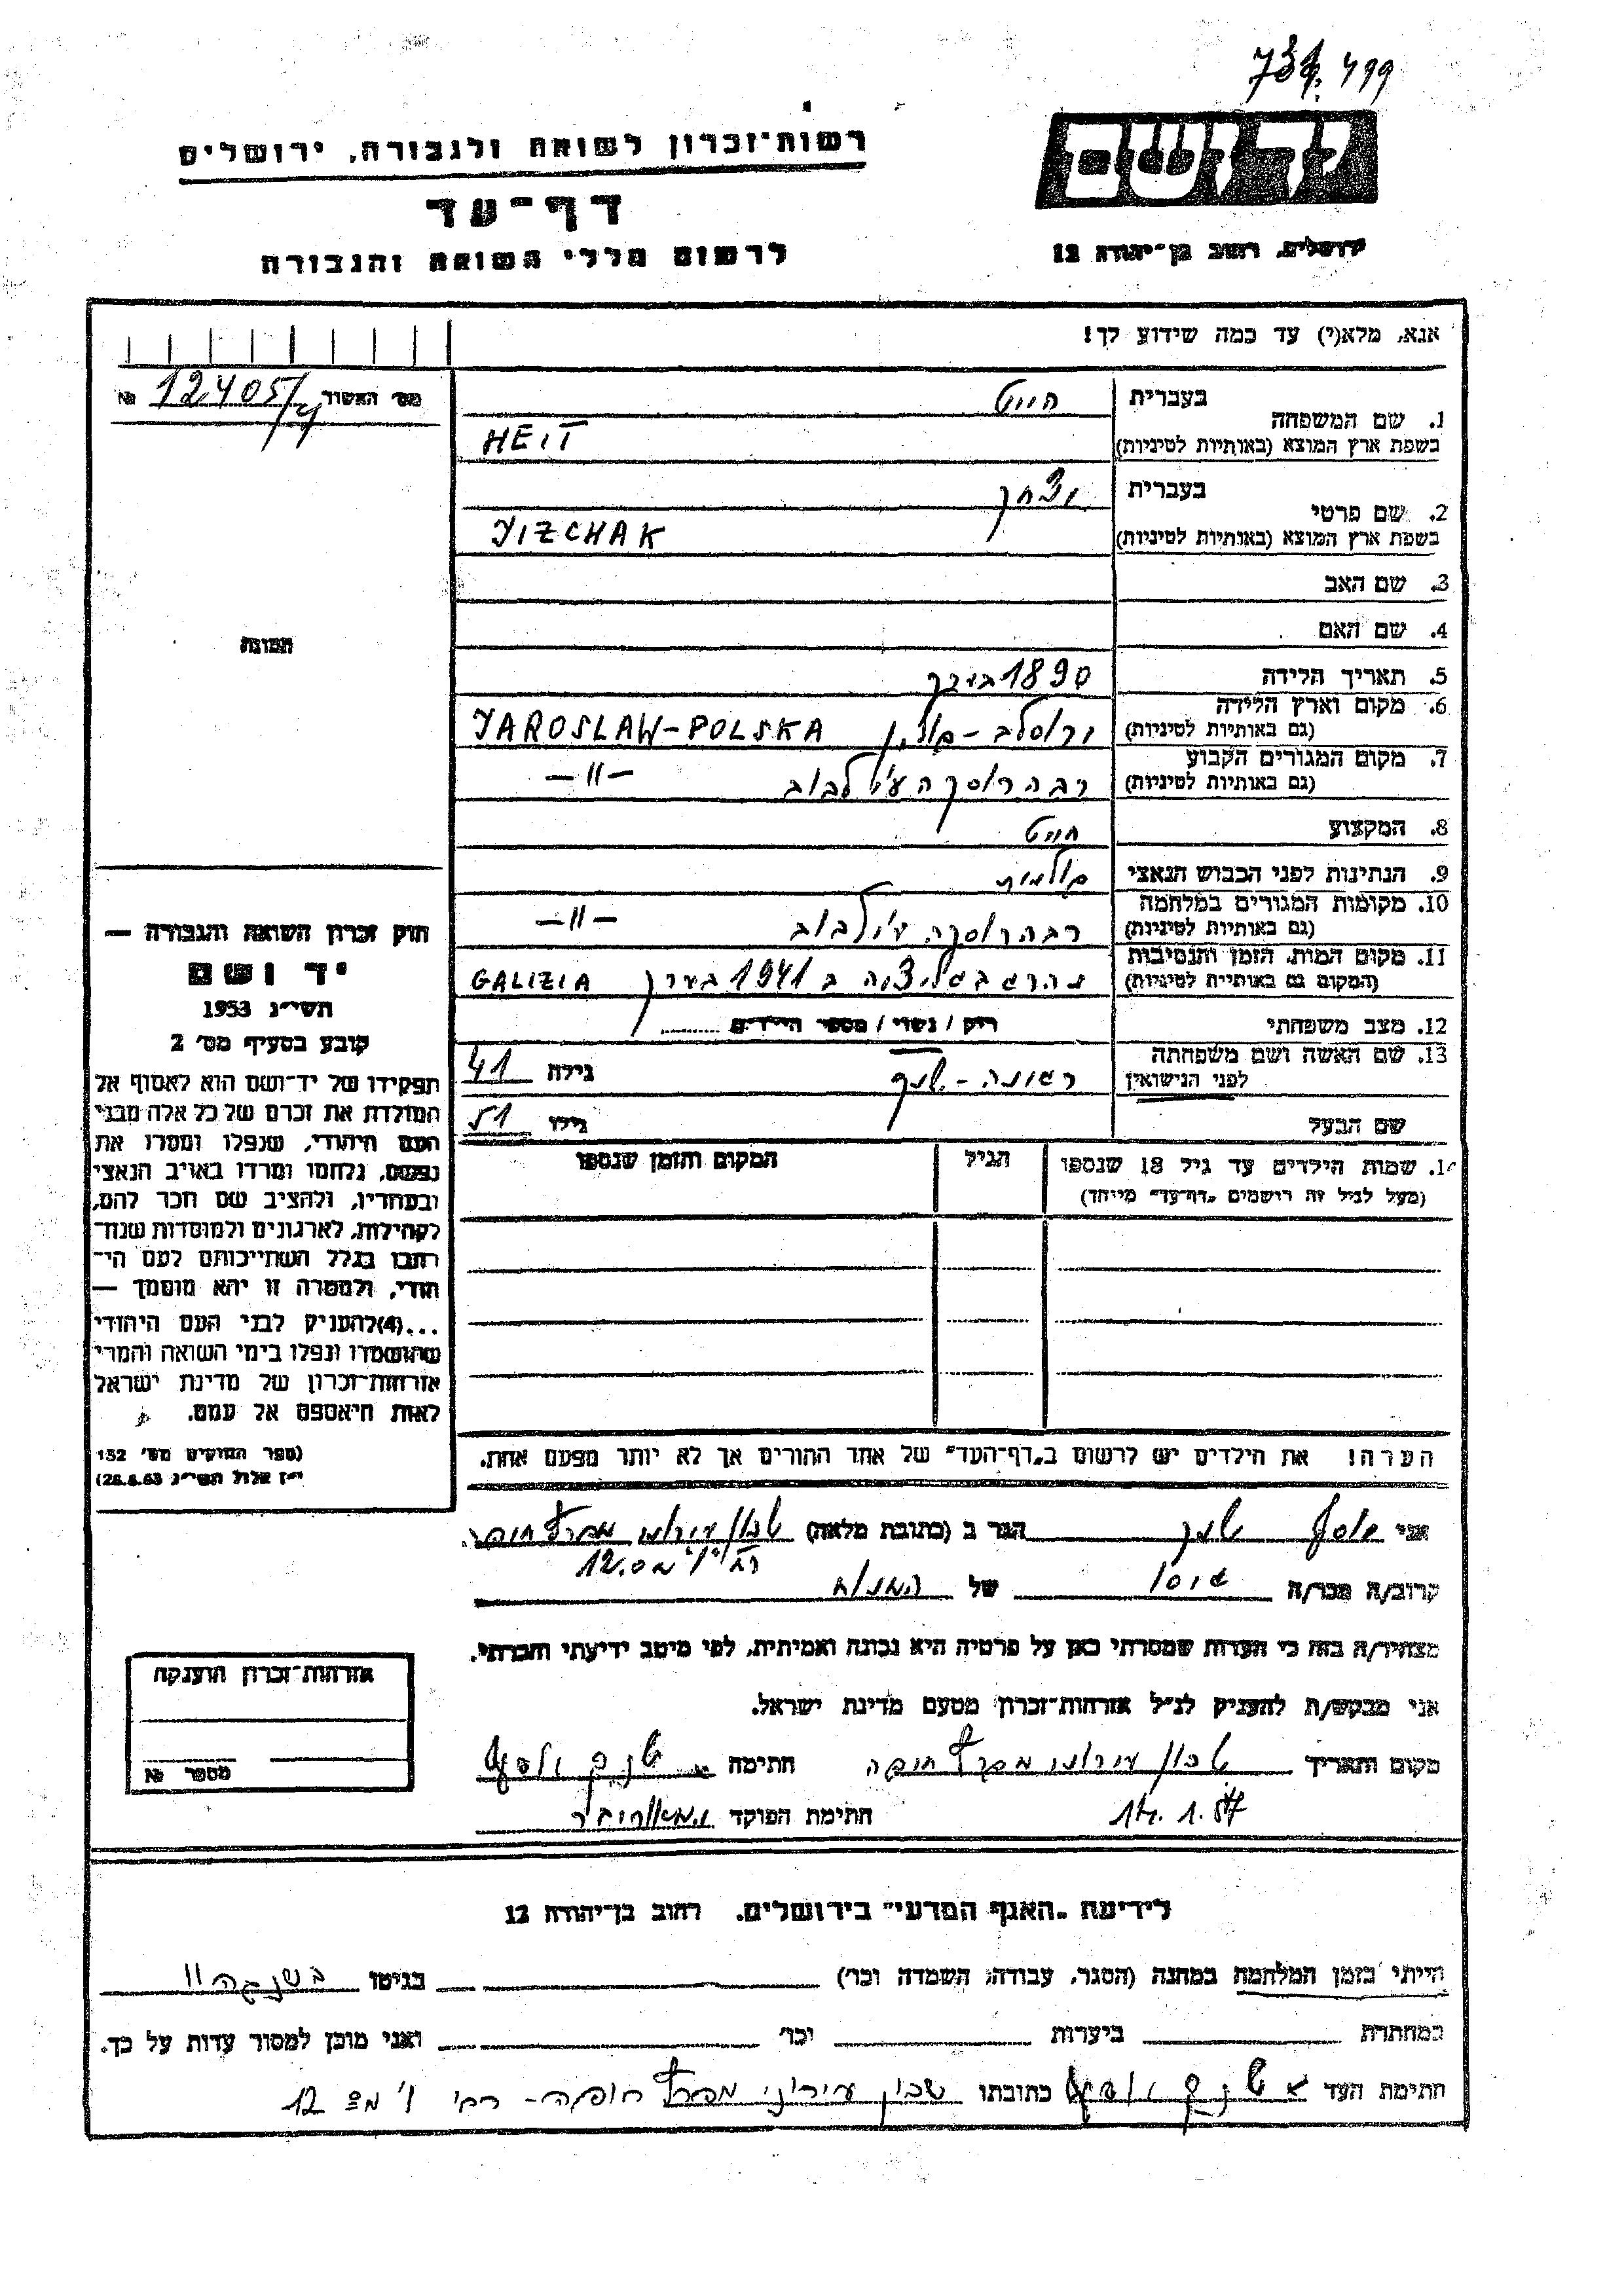 731. 499
רשות־זכרון לשואה ולגבורה, ירושלים
יד ושם
דף־עד
לרשום חללי השואה והגבורה
ירושלים, רחוב בן־יהודה 12
אנא, מלא(י) עד כמה שידוע לך!
מס׳ האשור № 12405/
בעברית
1. שם המשפחה
בשפת ארץ המוצא (באותיות לטיניות)
HEIT
בעברית יצחק
2. שם פרטי
בשפת ארץ המוצא (באותיות לטיניות)
YIZCHAK
3. שם האב
4. שם האם
תמונה
5. תאריך הלידה 1890 בערך
6. מקום וארץ הלידה
(גם באותיות לטיניות) ירוסלב - פולין YAROSLAW-POLSKA
7. מקום המגורים הקבוע
(גם באותיות לטיניות) רבה רוסקה ע״י לבוב —״—
8. המקצוע חייט
9. הנתינות לפני הכבוש הנאצי פולנית
10. מקומות המגורים במלחמה
(גם באותיות לטיניות) רבה רוסקה ע״י לבוב —״—
11. מקום המות, הזמן והנסיבות
(המקום גם באותיות לטיניות) נהרג בגליציה ב 1941 בערך GALIZIA
12. מצב משפחתי רוק / נשוי / מספר הילדים ........
13. שם האשה ושם משפחתה
לפני הנישואין גילה 41
שם הבעל גילו 51
14. שמות הילדים עד גיל 18 שנספו הגיל המקום והזמן שנספו
(מעל לגיל זה רושמים „דף־עד״ מיוחד)
חוק זכרון השואה והגבורה —
יד ושם
תשי״ג 1953
קובע בסעיף מס׳ 2
תפקידו של יד־ושם הוא לאסוף אל
המולדת את זכרם של כל אלה מבני
העם היהודי, שנפלו ומסרו את
נפשם, נלחמו ומרדו באויב הנאצי
ובעוזריו, ולהציב שם וזכר להם,
לקהילות, לארגונים ולמוסדות שנח־
רבו בגלל השתייכותם לעם הי־
הודי, ולמטרה זו יהא מוסמך —
...(4) להעניק לבני העם היהודי
שהושמדו ונפלו בימי השואה והמרי
אזרחות־זכרון של מדינת ישראל
לאות היאספם אל עמם.
(ספר החוקים מס׳ 132
י״ז אלול תשי״ג 28.8.53)
הערה! את הילדים יש לרשום ב„דף־העד״ של אחד ההורים אך לא יותר מפעם אחת.
אני יוסף הגר ב (כתובת מלאה) שכון עירוני מפרץ חיפה
12.
קרוב/ה מכר/ה גיסו של המנוח
מצהיר/ה בזה כי העדות שמסרתי כאן על פרטיה היא נכונה ואמיתית, לפי מיטב ידיעתי והכרתי.
אני מבקש/ת להעניק לנ״ל אזרחות־זכרון מטעם מדינת ישראל.
מקום ותאריך שכון עירוני מפרץ חיפה חתימה
14.1.57 חתימת הפוקד
אזרחות־זכרון הוענקה
מספר №
לידיעת „האגף המדעי״ בירושלים, רחוב בן־יהודה 12
הייתי בזמן המלחמה במחנה (הסגר, עבודה, השמדה וכו׳) בגיטו
במחתרת ביערות וכו׳ ואני מוכן למסור עדות על כך.
חתימת העד כתובתו שכון עירוני מפרץ חיפה - רח׳ ו׳ מס 12